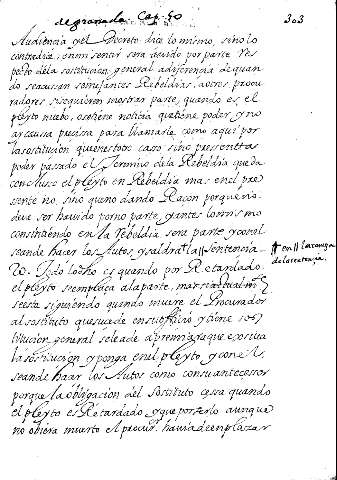 de granada Cap. 50
303
Audiencia y el Decreto dice lo mismo, sino lo
contradice, en mi sentir sera havido por parte. Res
pecto dela sostitucion general adiferencia de quan
do se acusan semejantes Rebeldias, aotros procu
radores siquieren mostrar parte, quando es el
pleyto nuebo, o se tiene noticia q tiene poder, y no
para llamarle como aqui por
la sostitucion que en este caso sino presenta
poder pasado el Termino dela Rebeldia queda
concluso el pleyto en Rebeldia mas en el pre
sente no, sino que no dando Raçon porque no
deva ser havido por no parte, y antes lo mismo
constituiendo en la Rebeldia sera parte y con el
seande hacer los Autos, y saldra la || Sentencia
|| en || la cauza
de la sentencia.
Y do lo dho es quando por Retardado
el pleyto se emplaça ala parte, mas si actual mte
se esta siguiendo quando muere el Procurador
al sostituto que sucede en su officio y tiene sos
titucion general se le a de apremiar a que excriva
la sostitucion y ponga en el pleyto y con el
seande haçer los Autos como con su antecessor
porque la obligacion del Sostituto cessa quando
el pleyto es Retardado y que por serlo aunque
no obiera muerto el procur. havia de emplazar